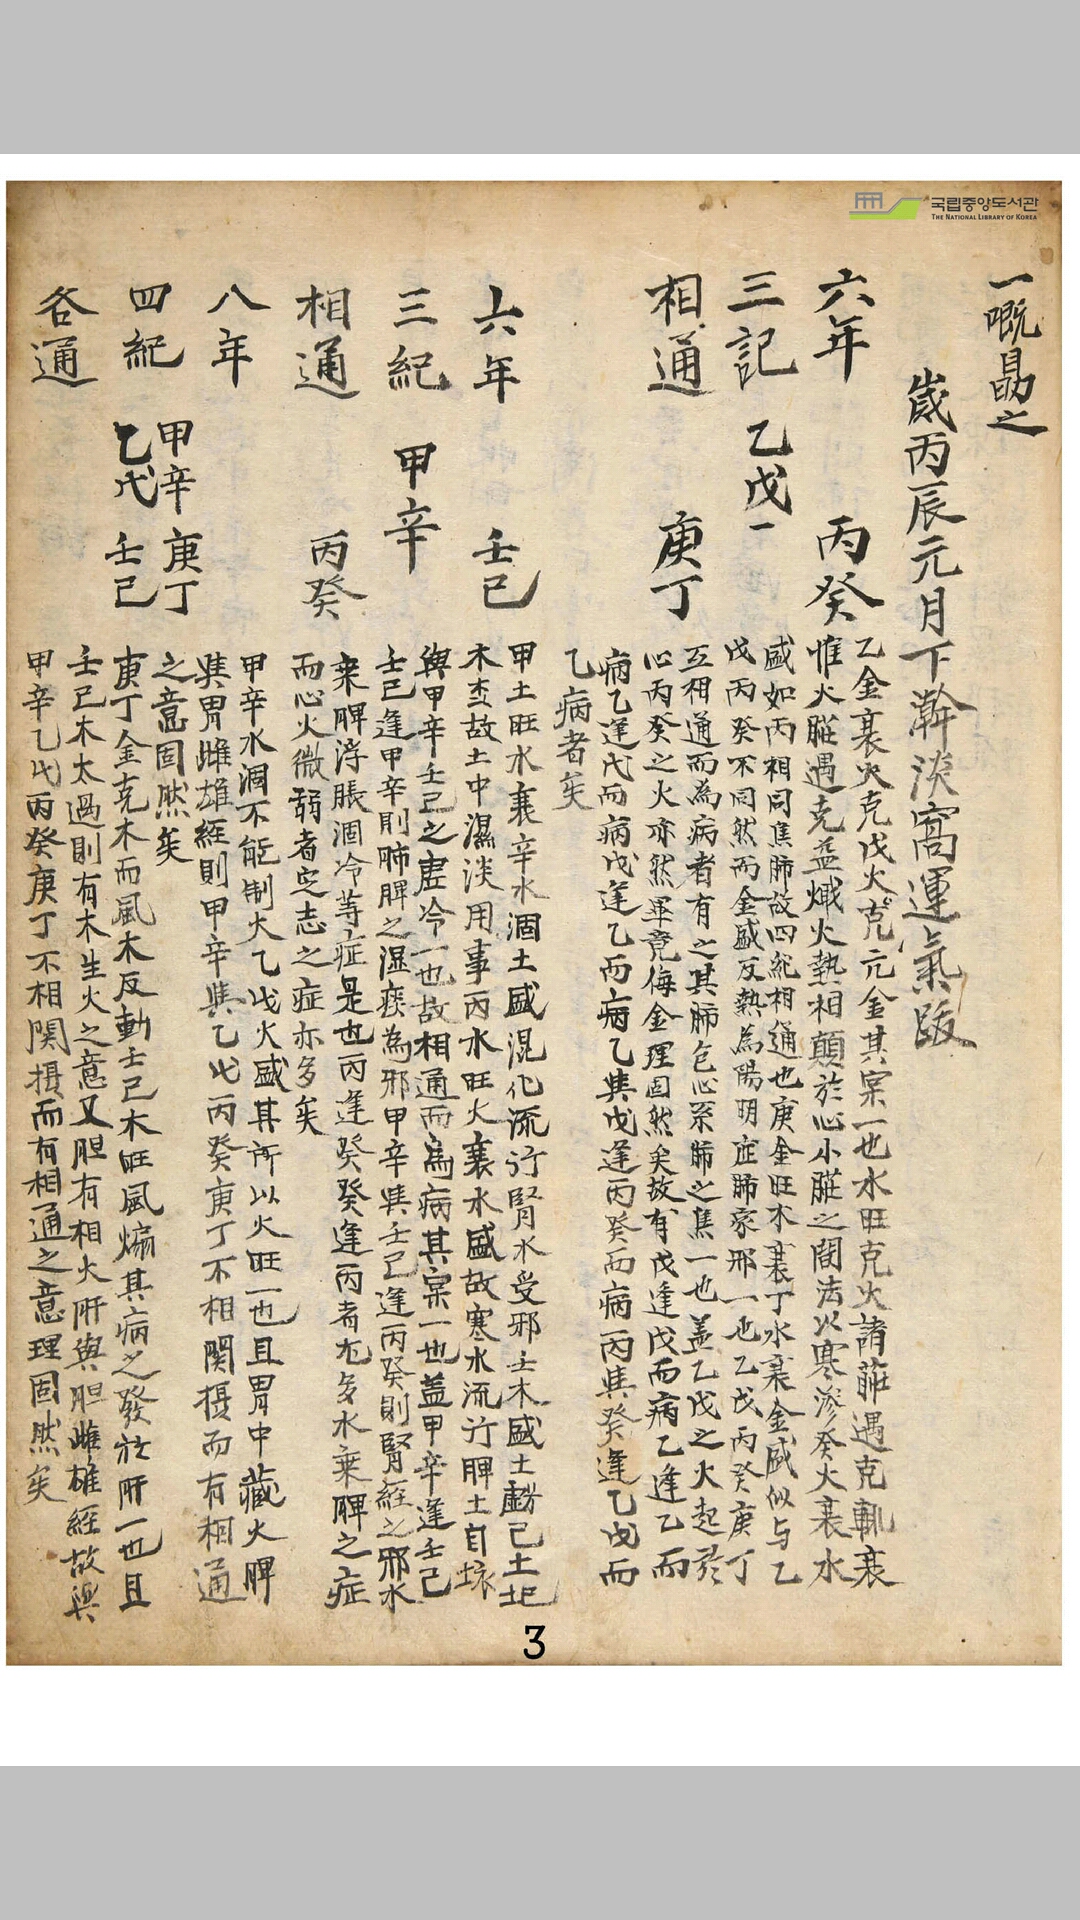 국립중앙도서관
THE NATIONAL LIBRARY OF KOREA
一嘅勗之
歲丙辰元月下澣淡窩運氣跋
六年 丙癸
三記 乙戊
相通 庚丁
乙金衰火克戊火克元金其宗一也水旺克火諸臟遇克輒衰
惟火臟遇克益熾火熱相顛於心小臟之間法以寒滲癸火衰水
盛如丙相同焦肺故四紀相通也庚金旺木衰丁水衰金盛似与乙
戊丙癸不同然而金盛反熱為陽明症肺家邪一也乙戊丙癸庚丁
互相通而為病者有之其肺包心系肺之焦一也盖乙戊之火起於
心丙癸之火亦然畢竟侮金理固然矣故有戊逢戊而病乙逢乙而
病乙逢戊而病戊逢乙而病乙與戊逢丙癸而病丙與癸逢乙戊而
乙病者矣
六年 壬己
三紀 甲辛
相通 丙癸
甲土旺水衰辛水涸土盛混化流行腎水受邪壬木盛土虧己土圮
木查故土中濕淡用事丙水旺火衰水盛故寒水流行脾土自壊
與甲辛壬己之虛冷一也故相通而為病其宗一也盖甲辛逢壬己
壬己逢甲辛則肺脾之湿痰為邪甲辛與壬己逢丙癸則腎經之邪水
来脾浮脹涸冷等症是也丙逢癸癸逢丙者尤多水乗脾之症
而心火微弱者定志之症亦多矣
八年 甲辛 庚丁
四紀 乙戊 壬己
各通
甲辛水涸不能制火乙戊火盛其所以火旺一也且胃中藏火脾
與胃雌雄經則甲辛與乙戊丙癸庚丁不相関摂而有相通
之意固然矣
庚丁金克木而風木反動壬己木旺風煽其病之發於肝一也且
壬己木太過則有木生火之意又胆有相火肝與胆雌雄經故與
甲辛乙戊丙癸庚丁不相関摂而有相通之意理固然矣
3